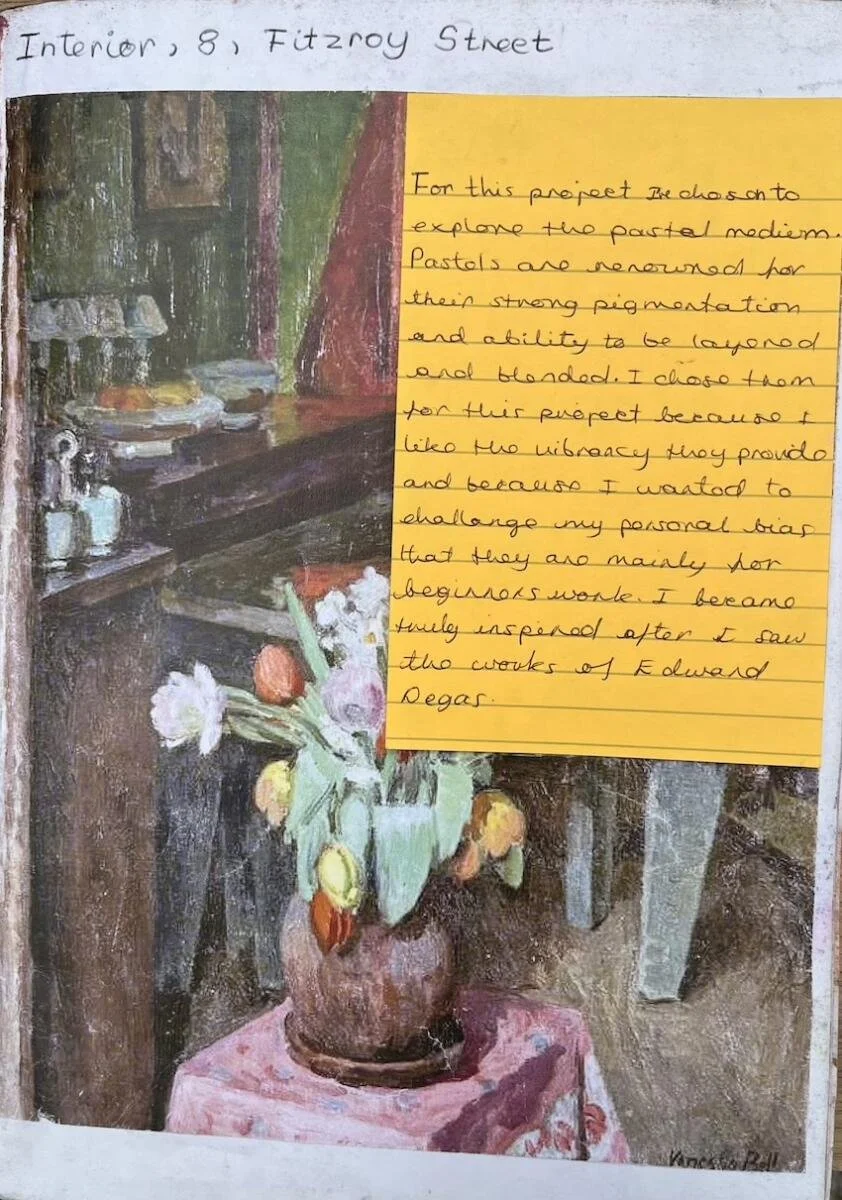 Interior, 8, Fitzroy Street
For this project I've chosen to
explore the pastel medium.
Pastels are renowned for
their strong pigmentation
and ability to be layered
and blended. I chose them
for this project because I
like the vibrancy they provide
and because I wanted to
challenge my personal bias
that they are mainly for
beginners work. I became
truly inspired after I saw
the works of Edward
Degas.
Vanessa Bell